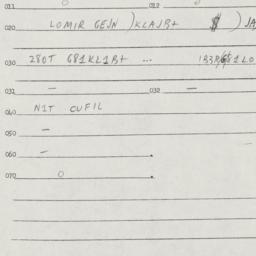 011 O 012 O
020 LOMIR GEJN ) KLAJB+ $ ) JA
030 280T G81KL1B+ ...
031 — 032 —
040 N1T CUFIL
050 —
060 — .
070 O .